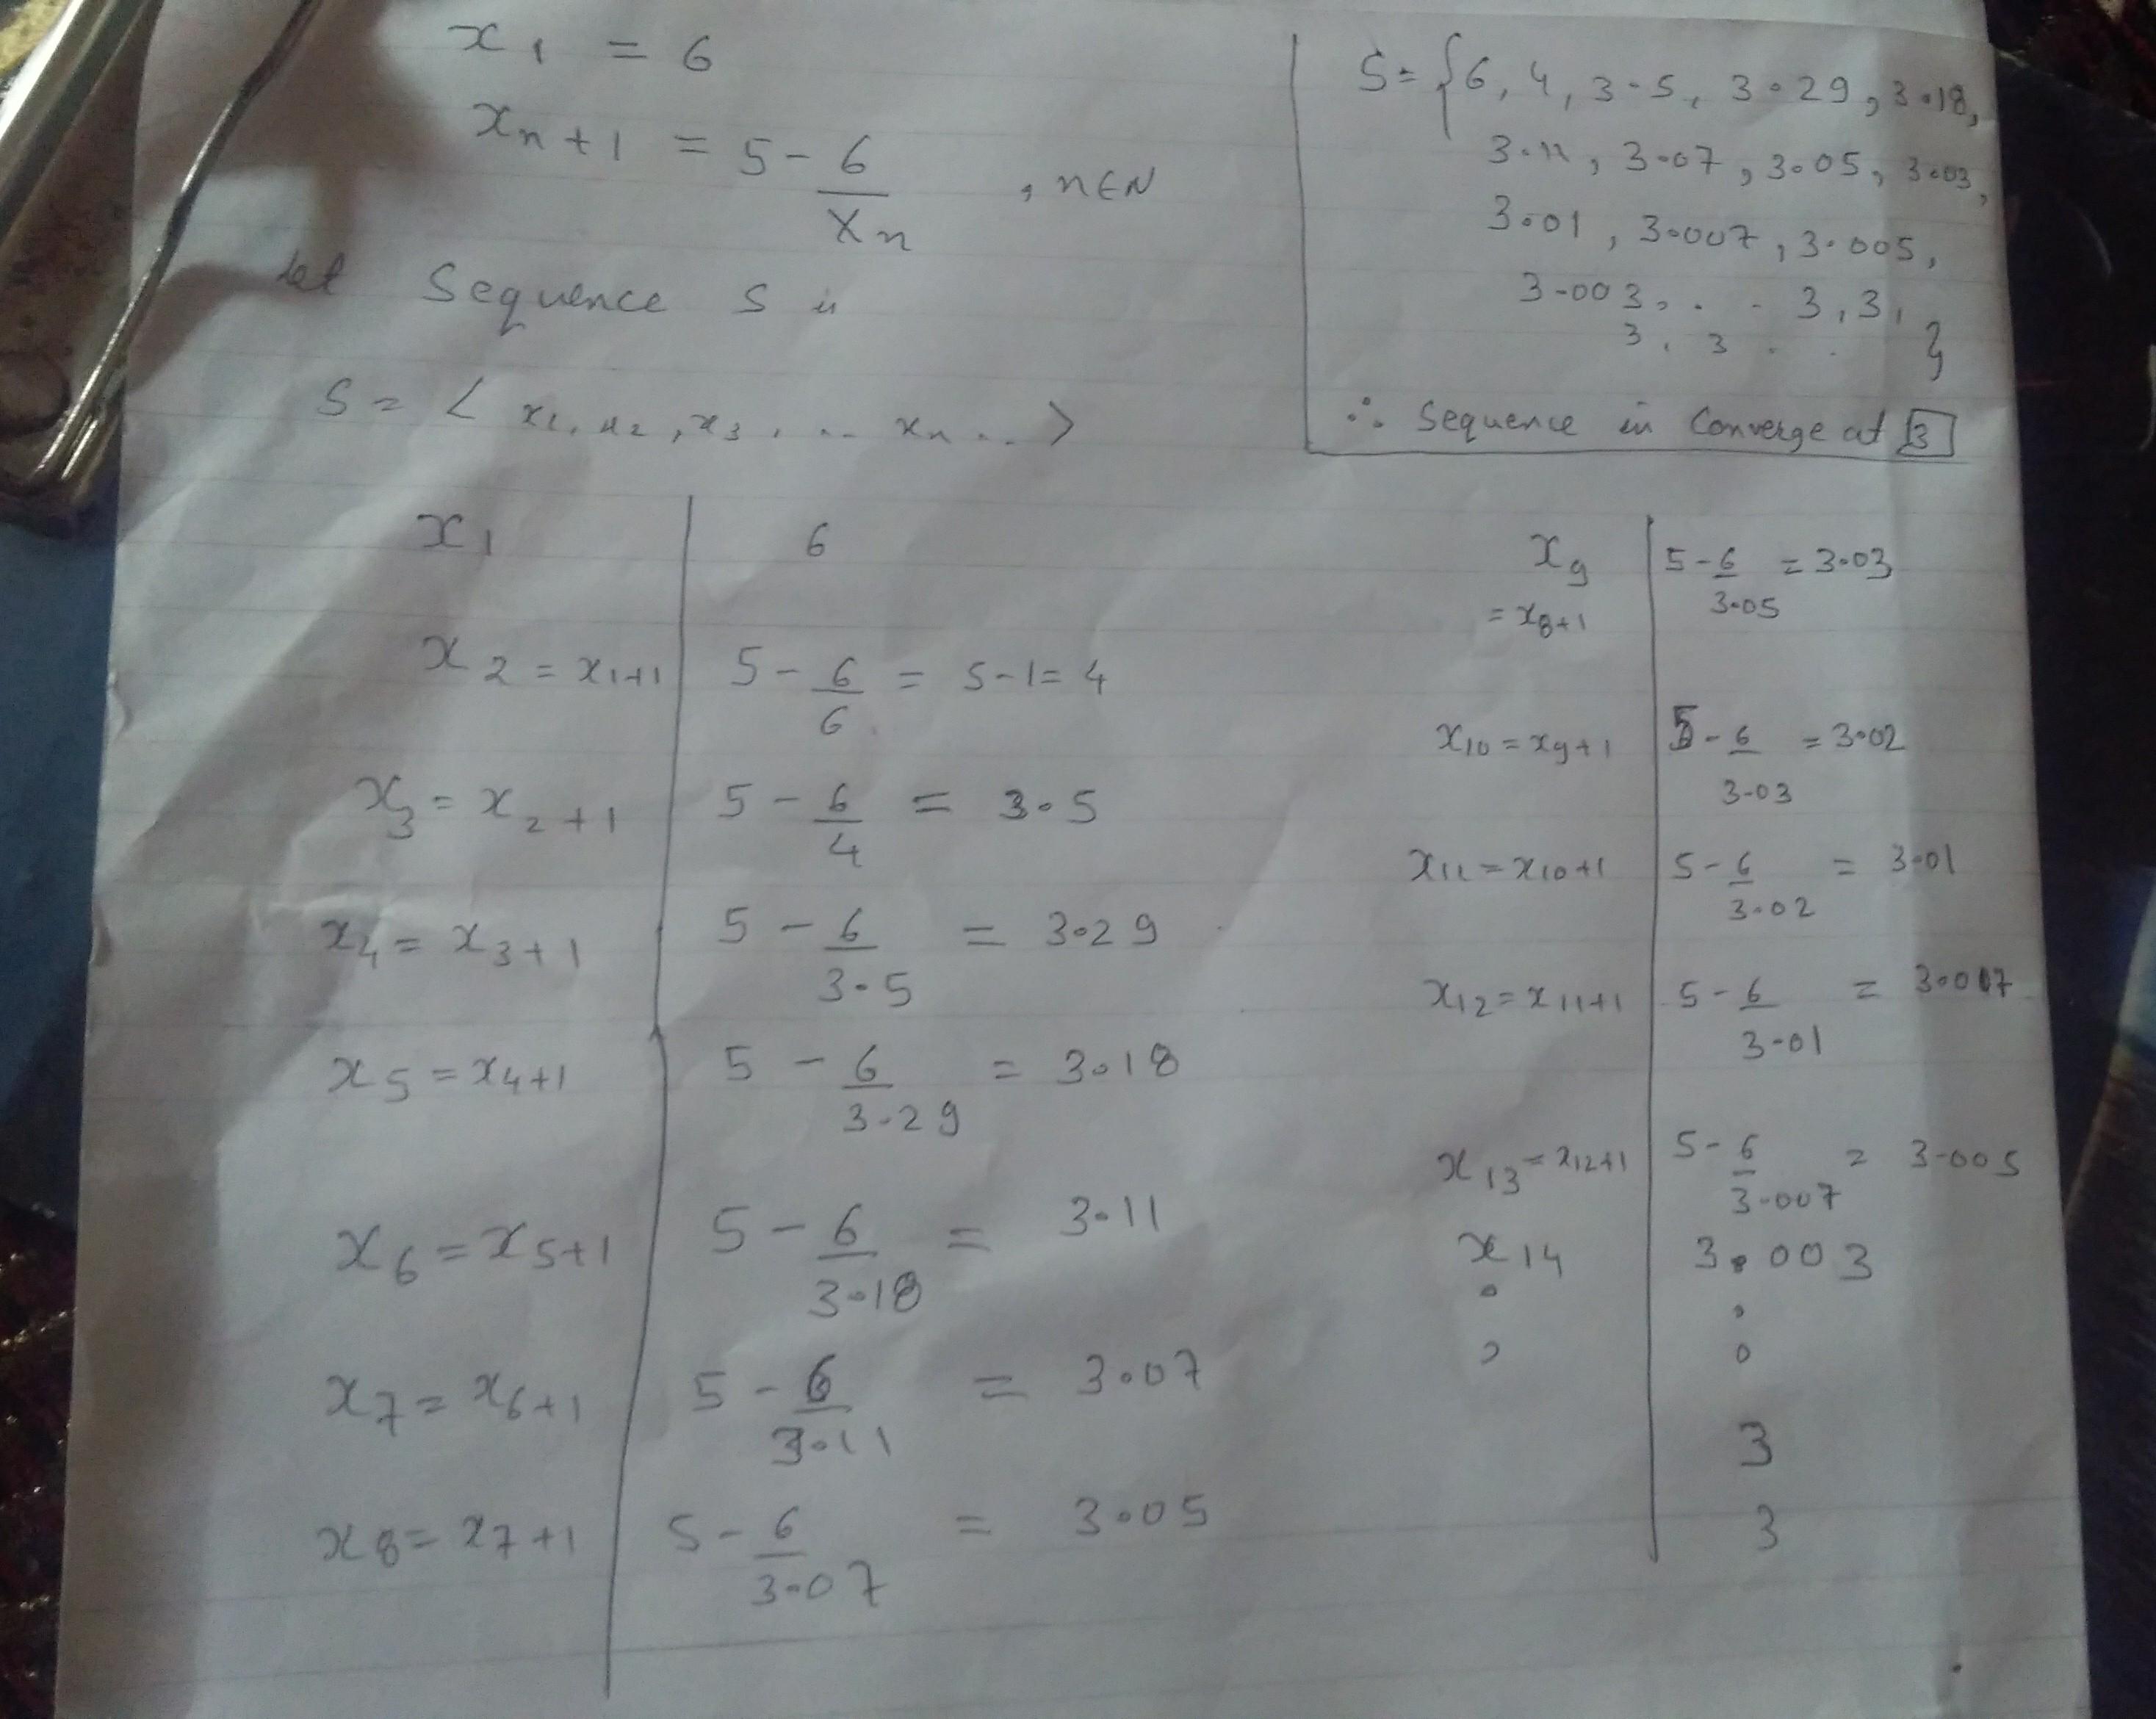 x1 = 6
xn+1 = 5 - 6/xn , n∈N
Let Sequence S is
S = < x1, x2, x3, .. xn .. >
S = {6, 4, 3.5, 3.29, 3.18,
3.11, 3.07, 3.05, 3.03,
3.01, 3.007, 3.005,
3.003, . . 3, 3,
3, 3 . . }
∴ Sequence in Converge at 3
x1 | 6
x2 = x1+1 | 5 - 6/6 = 5-1 = 4
x3 = x2+1 | 5 - 6/4 = 3.5
x4 = x3+1 | 5 - 6/3.5 = 3.29
x5 = x4+1 | 5 - 6/3.29 = 3.18
x6 = x5+1 | 5 - 6/3.18 = 3.11
x7 = x6+1 | 5 - 6/3.11 = 3.07
x8 = x7+1 | 5 - 6/3.07 = 3.05
x9 | 5 - 6/3.05 = 3.03
= x8+1
x10 = x9+1 | 5 - 6/3.03 = 3.02
x11 = x10+1 | 5 - 6/3.02 = 3.01
x12 = x11+1 | 5 - 6/3.01 = 3.007
x13 = x12+1 | 5 - 6/3.007 = 3.005
x14 | 3.003
3
3